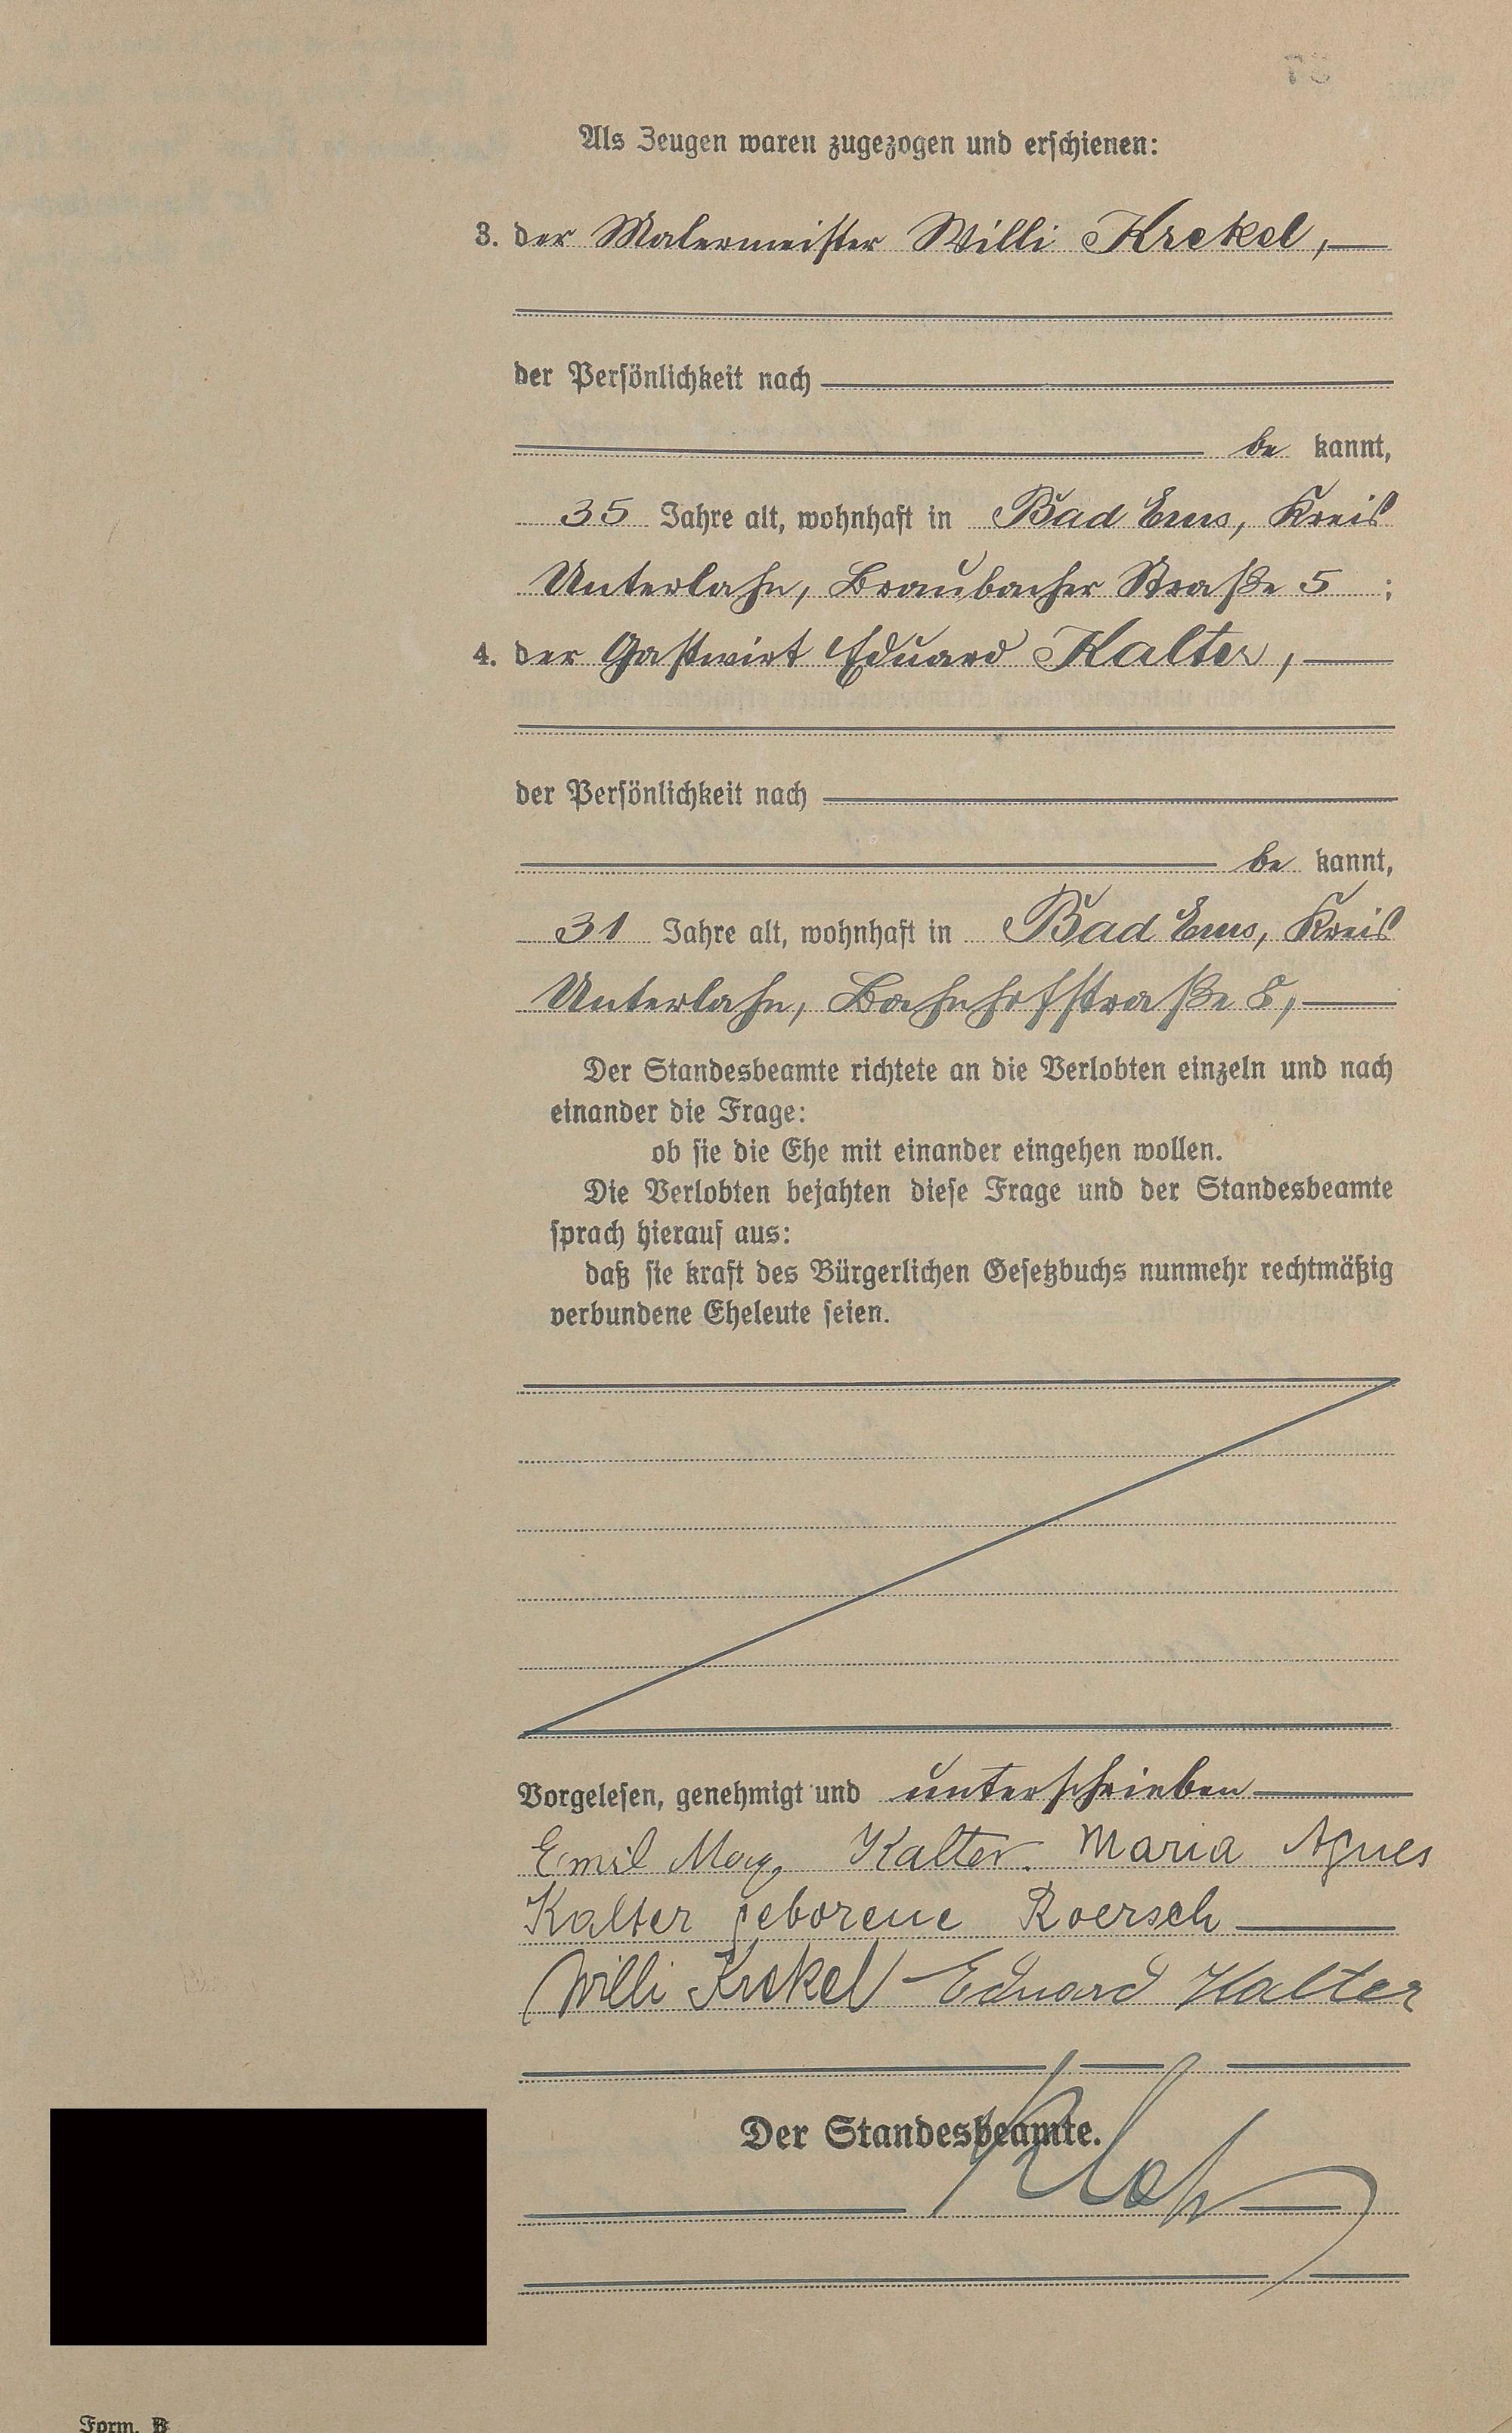 Als Zeugen waren zugezogen und erschienen:
3. der Malermeister Willi Krekel,
der Persönlichkeit nach
be kannt,
35 Jahre alt, wohnhaft in Bad Ems, Kreis
Unterlahn, Braubacher Straße 5 ;
4. der Gastwirt Eduard Kalter,
der Persönlichkeit nach
be kannt,
31 Jahre alt, wohnhaft in Bad Ems, Kreis
Unterlahn, Bahnhofstraße 8,
Der Standesbeamte richtete an die Verlobten einzeln und nach
einander die Frage:
ob sie die Ehe mit einander eingehen wollen.
Die Verlobten bejahten diese Frage und der Standesbeamte
sprach hierauf aus:
daß sie kraft des Bürgerlichen Gesetzbuchs nunmehr rechtmäßig
verbundene Eheleute seien.
Vorgelesen, genehmigt und unterschrieben
Emil Kalter. Maria Agnes
Kalter geborene Roersch
Willi Krekel Eduard Kalter
Der Standesbeamte.
Form. B